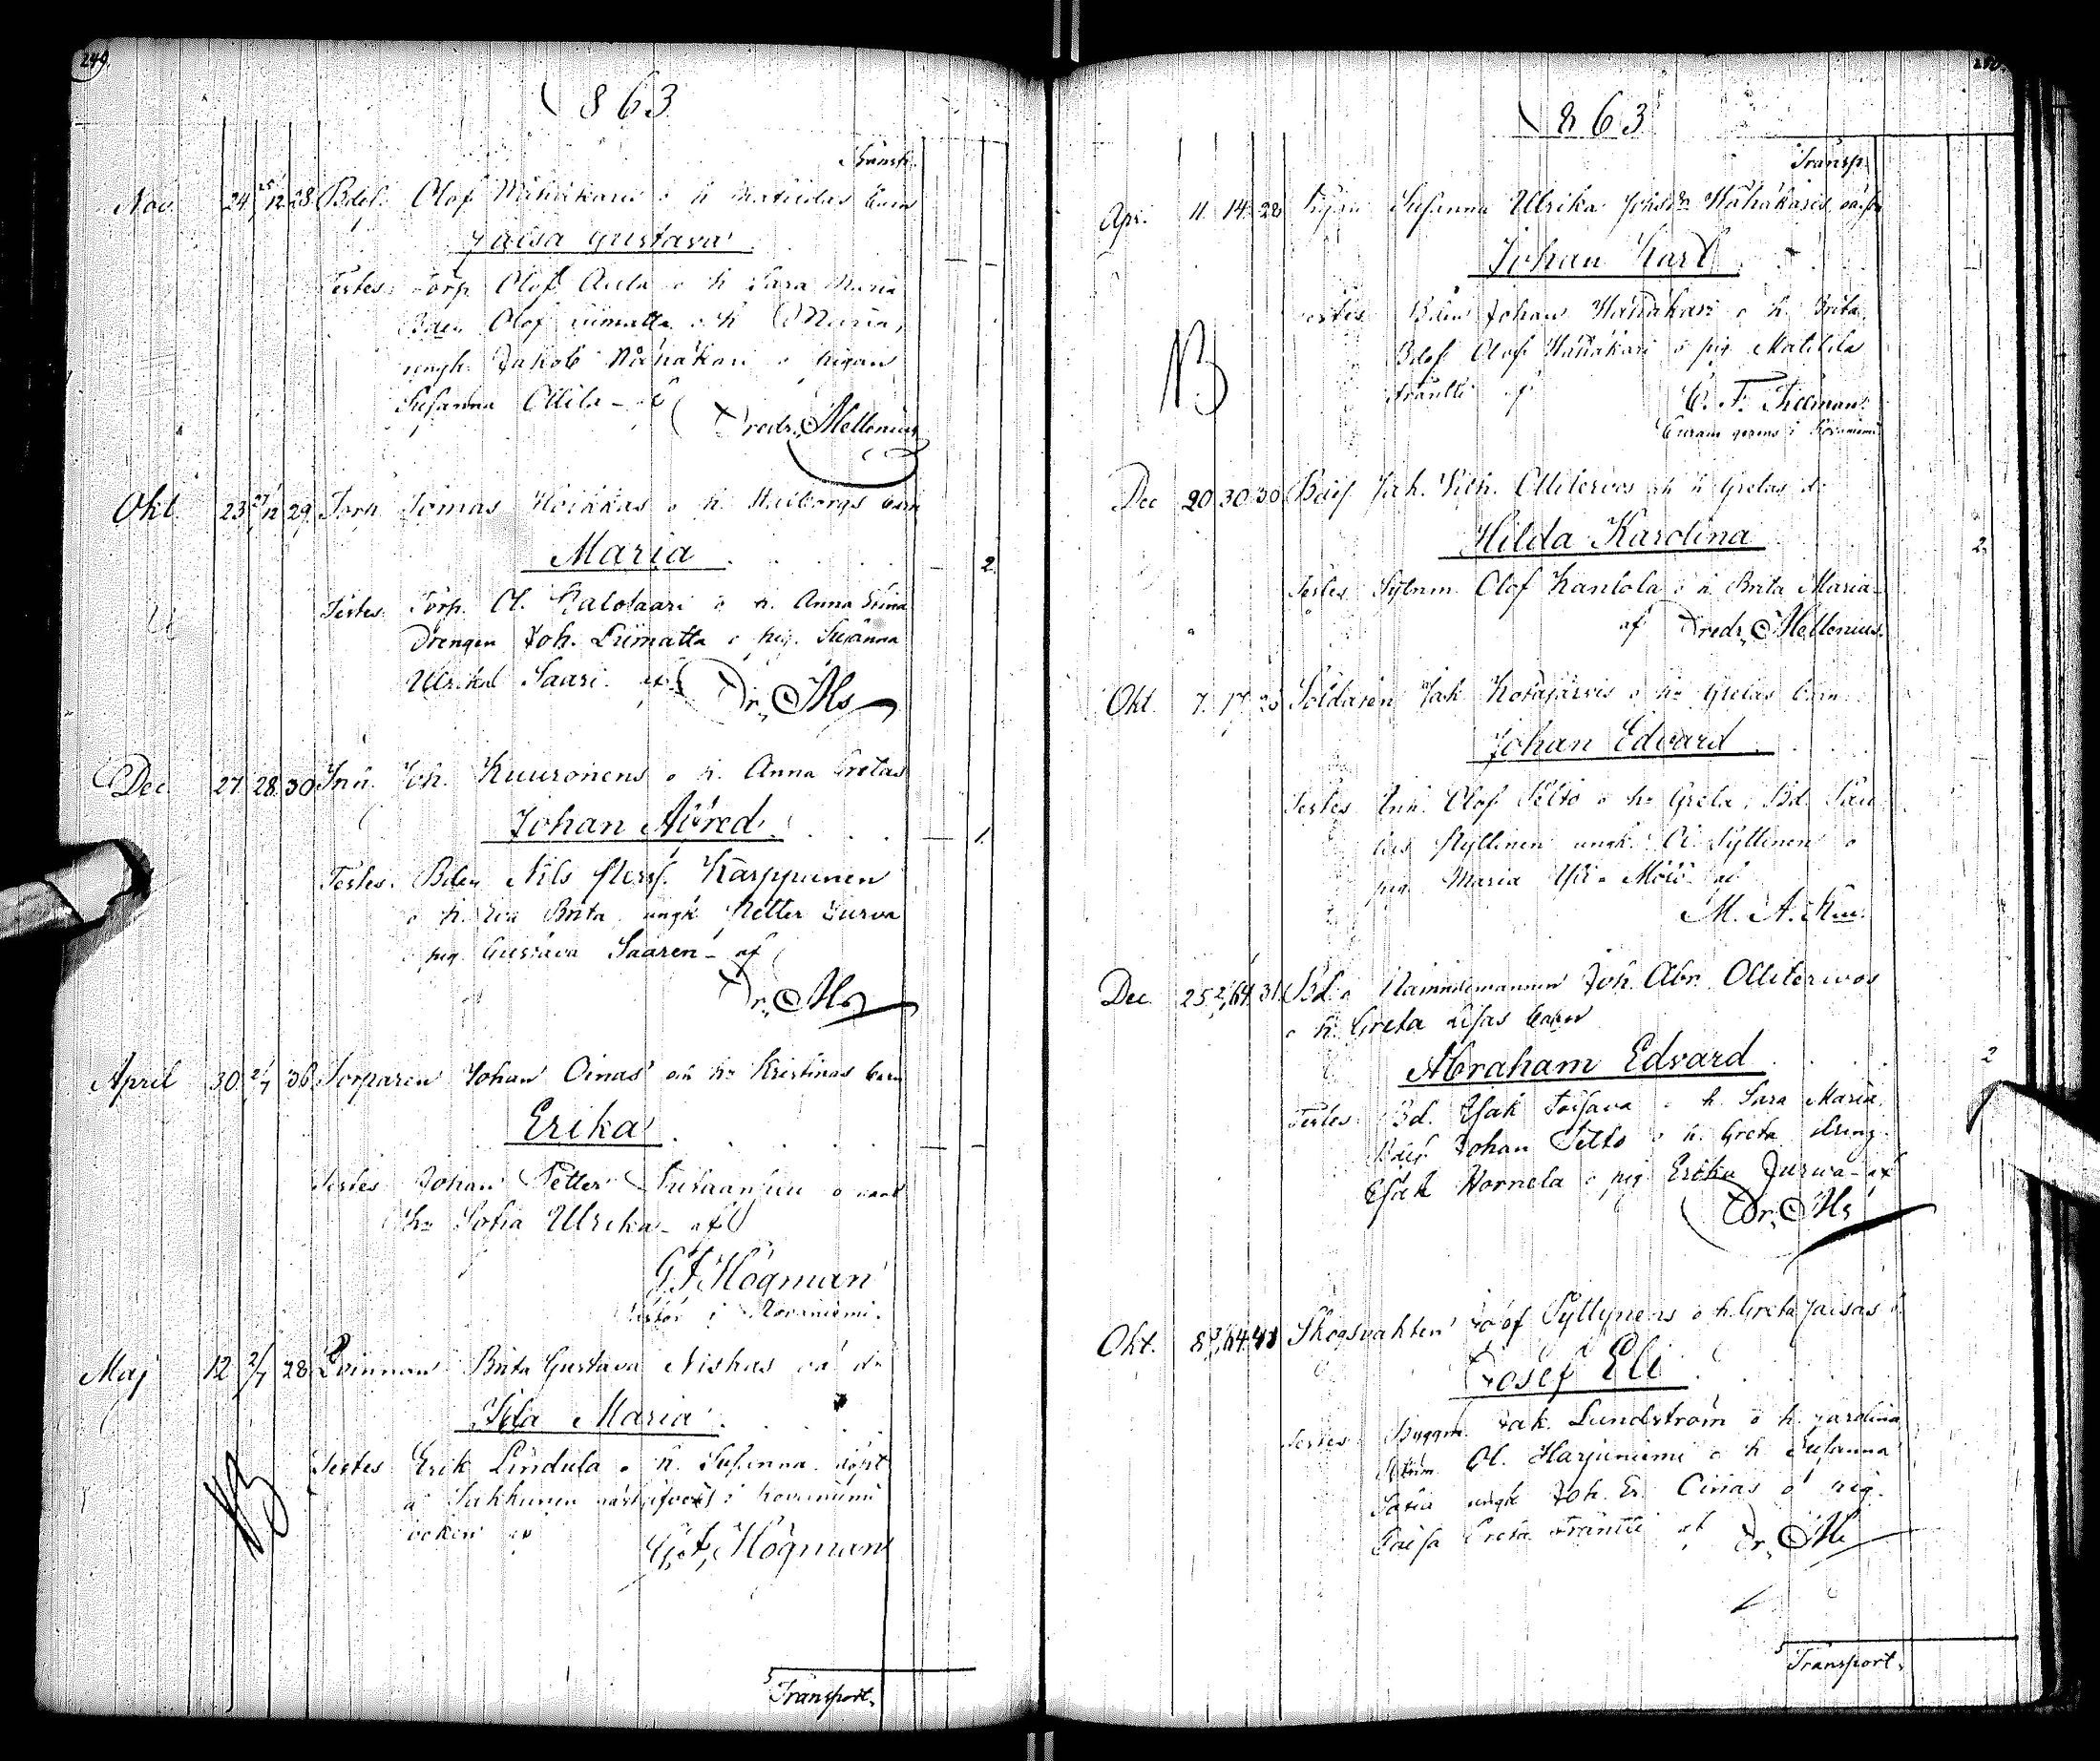 249.
1863
Transp.
Nov. 24 25/12 28 Bdes. Olof Mänäkaris o h Matildas barn
Kaisa Gustava
Testes: Torp. Olof Aula o h Sara Maria
Bden Olof Liimatta o h Maria,
yngl. Jakob Nänäkari o pigan
Susanna Ollila - af
Fredr. Hellenius
Okt. 23 27/12 29 Torp. Tomas Hoikkas o h. Walborgs barn
Maria 2
Testes: Torp. Ol. Kalolaari o h. Anna Stina
Drengen Joh. Liimatta o pig. Susanna
Ulrika Saari. af
Fr. Hs
Dec. 27 28 30 Inh. Joh. Kuuronens o h. Anna Gretas
Johan Alfred 1.
Testes: Bden Nils Karppinen
o h. Eva Brita, yngk. Petter Turva
o pig. Gustava Saaren - af
Fr. Hs
April 30 2/7 36 Torparen Johan Oinas och hu Kristinas barn
Erika
Testes Johan Petter o
hu Sofia Ulrika - af
G. F. Högman
Pastor i Rovaniemi.
Maj 12 2/7 28 Qvinnan Brita Gustava Niskas oä dr
Ida Maria
NB
Testes Erik Lindula o h. Susanna. döpt
i Rovaniemi
boken af
G. F. Högman
Transport.
250.
1863
Transp.
Apr. 11 14 28 Pigan Susanna Ulrika Johsdr Hänäkaris oä son
Johan Karl
NB
Testes Bden Johan Hänäkari o h. Brita,
Bdes. Olof Hänäkari o pig. Matilda
Frantti af
C. F. Tillman.
Curam gerens i Rovaniemi
Dec. 20 30 30 Bdes. Joh. Vilh. Ollitervos och h Gretas dr
Hilda Karolina 2.
Testes Sytnm. Olof Kantola o h Brita Maria
af Fredr. Hellenius.
Okt. 7 17 25 Soldaten Jak. Kotajärvis o hu Gretas barn
Johan Edvard
Testes Inh. Olof Pelto o hu Greta, Bd. Pau-
lus Kyllinen yngk. Syltinen o
pig. Maria Mörö af
M. A.
Dec. 25 2/1 64 31 Bd. o Nämndemannen Joh. Abr. Ollitervos
o h. Greta Lisas barn
Abraham Edvard 2
Testes: Bd. Isak Toisava o h. Sara Maria,
Bdes. Johan Pelto o h. Greta dreng.
Isak Kornela o pig. Erika Jurva - af
Fr. Hs
Okt. 8 64 Skogsvakten Josef Syltynens o h. Greta Kaisas
Josef Eli
Testes: Byggm. Jak. Lundström o h. Karolina
Ol. Harjuniemi o h Susanna
Sofia yngk Joh. Er. Oinas o pig.
Kaisa Greta Frantti af Fr. Hs
Transport.